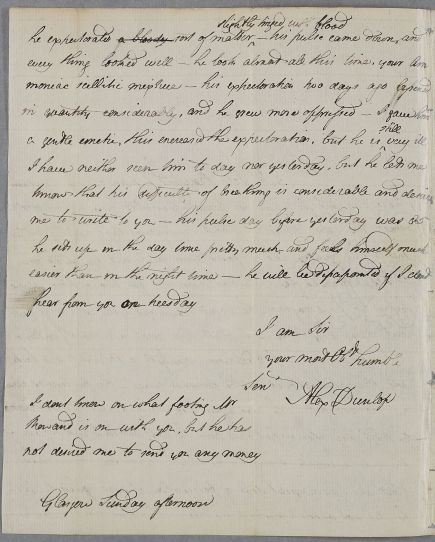 slightly mixed with blood
he expectorated a bloody sort of matter — his pulse came down, and
every thing looked well — he took almost all this time, your am
moniac scillitic mixture — his expectoration two days ago
in quantity considerably, and he grew more oppressed — I gave him
a gentle emetic, this encreased the expectoration, but he is still very ill
I have neither seen him to day nor yesterday, but he lets me
know that his difficulty of breathing is considerable and desires
me to write to you — his pulse day before yesterday was
he sits up in the day time pretty much and feels himself much
easier than in the night time — he will be disapointed if I dont
hear from you on tuesday
I am Sir
your most Obdt humble
Servt
Alexr Dunlop
I dont know on what footing Mr
is on with you, but he has
not desired me to send you any money
Glasgow Sunday afternoon